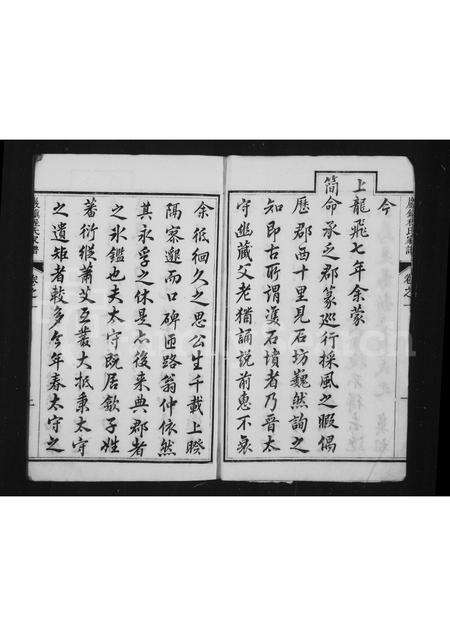 今
上龍飛七年余蒙
簡命承乏郡篆巡行採風之暇偶
歷郡西十里見石坊巍然詢之
知即古所謂雙石墳者乃晉太
守幽藏父老猶誦說前惠不衰
余徘徊久之思公生千載上睽
隔寥邈而口碑匝路翁仲依然
其永孚之休是亦後來典郡者
之氷鑑也夫太守既居歙子姓
蕃衍縱蕭艾互叢大抵秉太守
之遺矩者較多今年春太守之